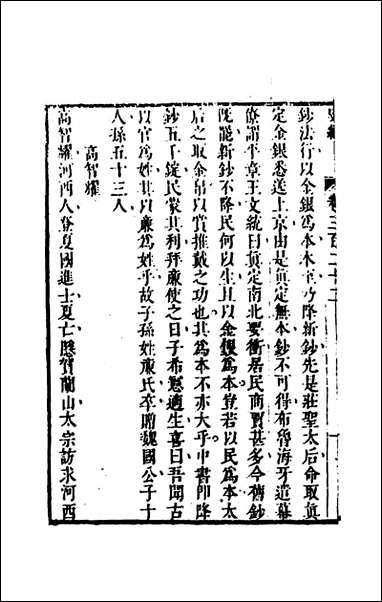 卷三百二十二
鈔法行以金銀為本本至乃降新鈔先是莊聖太后命取真
定金銀悉送上京由是真定無本鈔不可得布魯海牙遣幕
僚謂平章王文統曰真定南北要衝居民商賈甚多今舊鈔
既罷新鈔不降民何以生且以金銀為本豈若以民為本太
后之取金帛以賞推戴之功也其為本不亦大乎中書即降
鈔五千錠民蒙其利拜廉使之日子希憲適生喜曰吾聞古
以官為姓其以廉為姓乎故子孫姓廉氏卒贈魏國公子十
人孫五十三人
高智耀
高智耀河西人登夏國進士夏亡隱賀蘭山太宗訪求河西